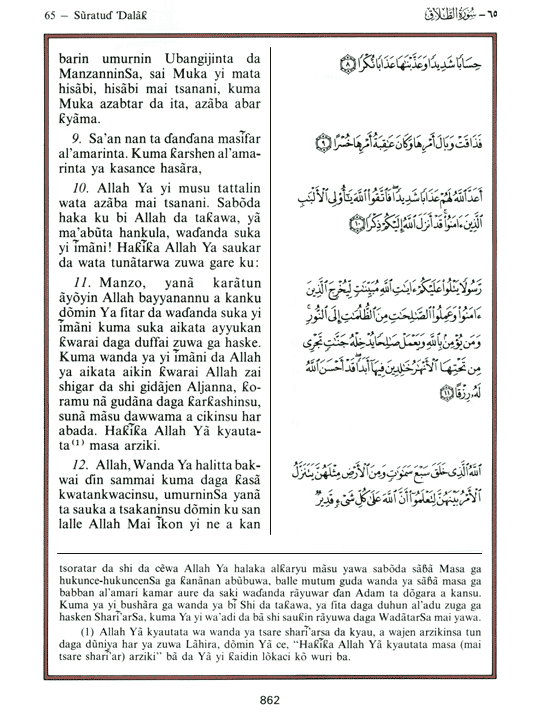 65 — Sūratuɗ Ɗalāƙ
٦٥ - سُورَةُ الطَّلَاق
barin umurnin Ubangijinta da
ManzanninSa, sai Muka yi mata
hisābi, hisābi mai tsanani, kuma
Muka azabtar da ita, azāba abar
ƙyāma.
9. Sa'an nan ta ɗanɗana masīfar
al'amarinta. Kuma ƙarshen al'ama-
rinta ya kasance hasāra,
10. Allah Ya yi musu tattalin
wata azāba mai tsanani. Sabōda
haka ku bi Allah da taƙawa, yā
ma'abūta hankula, waɗanda suka
yi īmāni! Haƙīƙa Allah Ya saukar
da wata tunātarwa zuwa gare ku:
11. Manzo, yanā karātun
āyōyin Allah bayyanannu a kanku
dōmin Ya fitar da waɗanda suka yi
īmāni kuma suka aikata ayyukan
ƙwarai daga duffai zuwa ga haske.
Kuma wanda ya yi īmāni da Allah
ya aikata aikin ƙwarai Allah zai
shigar da shi gidājen Aljanna, ƙo-
ramu nā gudāna daga ƙarƙashinsu,
sunā māsu dawwama a cikinsu har
abada. Haƙīƙa Allah Yā kyauta-
ta(1) masa arziki.
12. Allah, Wanda Ya halitta bak-
wai ɗin sammai kuma daga ƙasā
kwatankwacinsu, umurninSa yanā
ta sauka a tsakaninsu dōmin ku san
lalle Allah Mai īkon yi ne a kan
حِسَابًا شَدِيدًا وَعَذَّبْنَٰهَا عَذَابًا نُّكْرًا ۝٨
فَذَاقَتْ وَبَالَ أَمْرِهَا وَكَانَ عَٰقِبَةُ أَمْرِهَا خُسْرًا ۝٩
أَعَدَّ ٱللَّهُ لَهُمْ عَذَابًا شَدِيدًا ۖ فَٱتَّقُوا۟ ٱللَّهَ يَٰٓأُو۟لِى ٱلْأَلْبَٰبِ
ٱلَّذِينَ ءَامَنُوا۟ ۚ قَدْ أَنزَلَ ٱللَّهُ إِلَيْكُمْ ذِكْرًا ۝١٠
رَّسُولًا يَتْلُوا۟ عَلَيْكُمْ ءَايَٰتِ ٱللَّهِ مُبَيِّنَٰتٍ لِّيُخْرِجَ ٱلَّذِينَ
ءَامَنُوا۟ وَعَمِلُوا۟ ٱلصَّٰلِحَٰتِ مِنَ ٱلظُّلُمَٰتِ إِلَى ٱلنُّورِ ۚ
وَمَن يُؤْمِنۢ بِٱللَّهِ وَيَعْمَلْ صَٰلِحًا يُدْخِلْهُ جَنَّٰتٍ تَجْرِى
مِن تَحْتِهَا ٱلْأَنْهَٰرُ خَٰلِدِينَ فِيهَآ أَبَدًا ۖ قَدْ أَحْسَنَ ٱللَّهُ
لَهُۥ رِزْقًا ۝١١
ٱللَّهُ ٱلَّذِى خَلَقَ سَبْعَ سَمَٰوَٰتٍ وَمِنَ ٱلْأَرْضِ مِثْلَهُنَّ يَتَنَزَّلُ
ٱلْأَمْرُ بَيْنَهُنَّ لِتَعْلَمُوٓا۟ أَنَّ ٱللَّهَ عَلَىٰ كُلِّ شَىْءٍ قَدِيرٌ
tsoratar da shi da cēwa Allah Ya halaka alƙaryu māsu yawa sabōda sāɓā Masa ga
hukunce-hukuncenSa ga ƙanānan abūbuwa, balle mutum guda wanda ya sāɓā masa ga
babban al'amari kamar aure da saki waɗanda rāyuwar ɗan Adam ta dōgara a kansu.
Kuma ya yi bushāra ga wanda ya bī Shi da taƙawa, ya fita daga duhun al'adu zuga ga
hasken Sharī'arSa, kuma Ya yi wa'adi da bā shi sauƙin rāyuwa daga WadātarSa mai yawa.
(1) Allah Yā kyautata wa wanda ya tsare sharī'arsa da kyau, a wajen arzikinsa tun
daga dūniya har ya zuwa Lāhira, dōmin Yā ce, "Haƙīƙa Allah Yā kyautata masa (mai
tsare sharī'ar) arziki" bā da Yā yi ƙaidin lōkaci kō wuri ba.
862